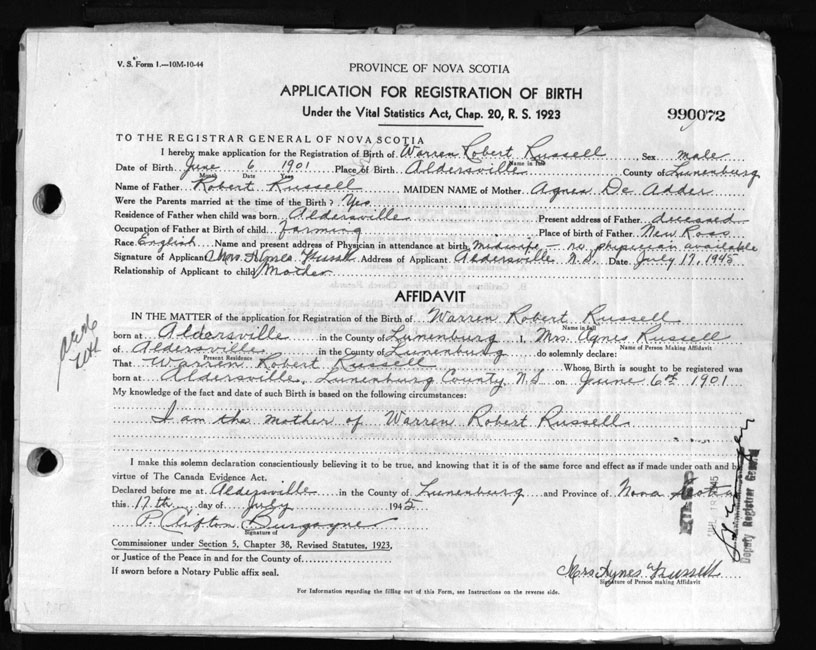 V. S. Form 1.—10M-10-44
PROVINCE OF NOVA SCOTIA
APPLICATION FOR REGISTRATION OF BIRTH
Under the Vital Statistics Act, Chap. 20, R. S. 1923
990072
TO THE REGISTRAR GENERAL OF NOVA SCOTIA
I hereby make application for the Registration of Birth of Warren Robert Russell Sex male
Name in full
Date of Birth June 6 1901 Place of Birth Aldersville County of Lunenburg
Month Date Year
Name of Father Robert Russell MAIDEN NAME of Mother Agnes De Adder
Were the Parents married at the time of the Birth? Yes
Residence of Father when child was born Aldersville Present address of Father deceased
Occupation of Father at Birth of child farming Place of birth of Father New Ross
Race English Name and present address of Physician in attendance at birth Midwife – no physician available
Signature of Applicant Mrs. Agnes Russell Address of Applicant Aldersville N.S. Date July 17, 1945
Relationship of Applicant to child Mother
AFFIDAVIT
IN THE MATTER of the application for Registration of the Birth of Warren Robert Russell
Name in full
born at Aldersville in the County of Lunenburg I, Mrs Agnes Russell
Name of Person Making Affidavit
of Aldersville in the County of Lunenburg do solemnly declare:
Present Residence
That Warren Robert Russell Whose Birth is sought to be registered was
born at Aldersville, Lunenburg County, N.S on June 6th 1901
My knowledge of the fact and date of such Birth is based on the following circumstances:
I am the mother of Warren Robert Russell
I make this solemn declaration conscientiously believing it to be true, and knowing that it is of the same force and effect as if made under oath and by
virtue of The Canada Evidence Act.
Declared before me at Aldersville in the County of Lunenburg and Province of Nova Scotia
this 17th day of July 1945
P. Clifton Burgoyne
Signature of
Commissioner under Section 5, Chapter 38, Revised Statutes, 1923,
or Justice of the Peace in and for the County of
If sworn before a Notary Public affix seal.
Mrs Agnes Russell
Signature of Person making Affidavit
For Information regarding the filling out of this Form, see Instructions on the reverse side.
Deputy Registrar General